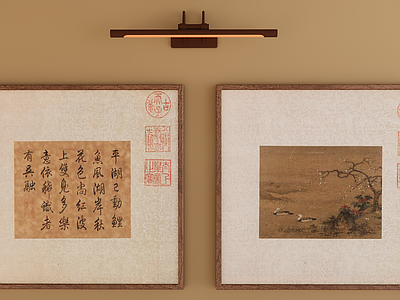 平湖已動鯉
魚風湖岸秋
花色尚紅波
上雙鳧多樂
意依稀識者
有吳融